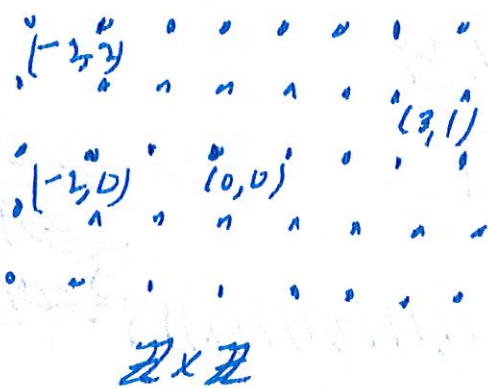 (-2,2)
(3,1)
(-2,0) (0,0)
ℤ×ℤ